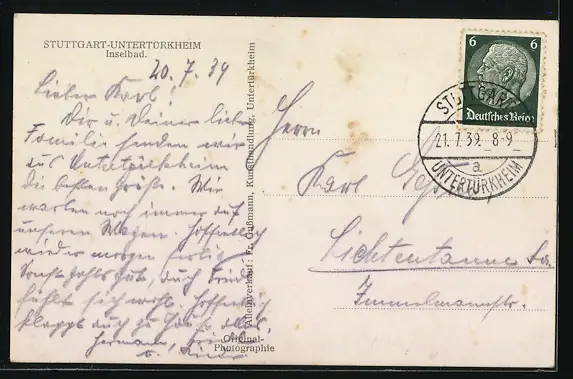 STUTTGART-UNTERTÜRKHEIM
Inselbad.
20. 7. 39
Lieber Karl!
Dir u. Deiner lieben
Familie senden wir
aus Untertürkheim
die besten Grüße. Wir
warten noch immer auf
unseren Wagen. Hoffentlich
wieder morgen fertig.
Sonst gehts gut, auch
fühlt sich wohl. Hoffentlich
klappt auch zu Haus alles.
Hermann,
u. Kinder
Alleinverkauf: Fr. Gußmann, Kunsthandlung, Untertürkheim
Original-
Photographie
6 6
Deutsches Reich
STUTTGART
21.7.39. 8-9
a
UNTERTÜRKHEIM
Herrn
Karl
Lichtentanne Sa.
Immelmannstr.